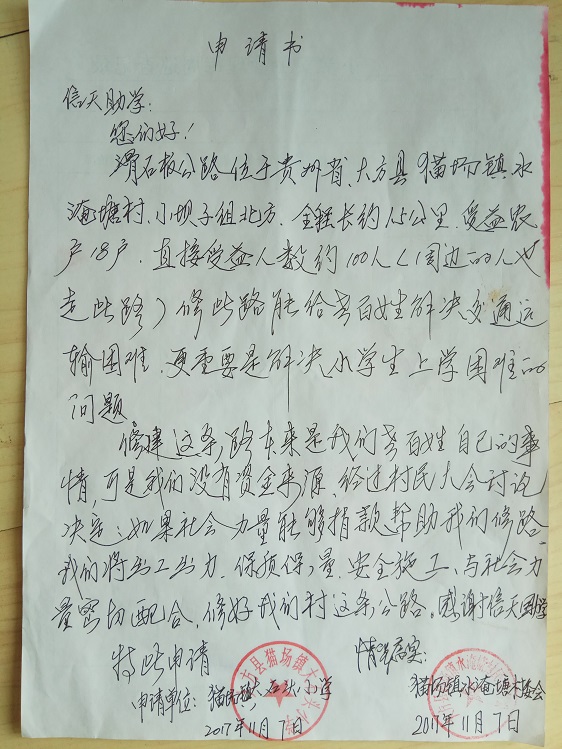 申请书
信天助学:
您们好!
滑石板公路位于贵州省、大方县猫场镇水
淹塘村、小坝子组北方.全程长约1.5公里.受益农
户18户.直接受益人数约100人(周边的人也
走此路)修此路能给老百姓解决交通运
输困难.更重要是解决小学生上学困难的
问题
修建这条路本来是我们老百姓自己的事
情,可是我们没有资金来源.经过村民大会讨论
决定:如果社会力量能够捐款帮助我们修路
我们将出工出力.保质保量.安全施工、与社会力
量密切配合.修好我们村这条公路。感谢信天助学
特此申请
情况属实:
申请单位:猫场镇大石头小学
猫场镇水淹塘村委会
2017年11月7日
2017年11月7日